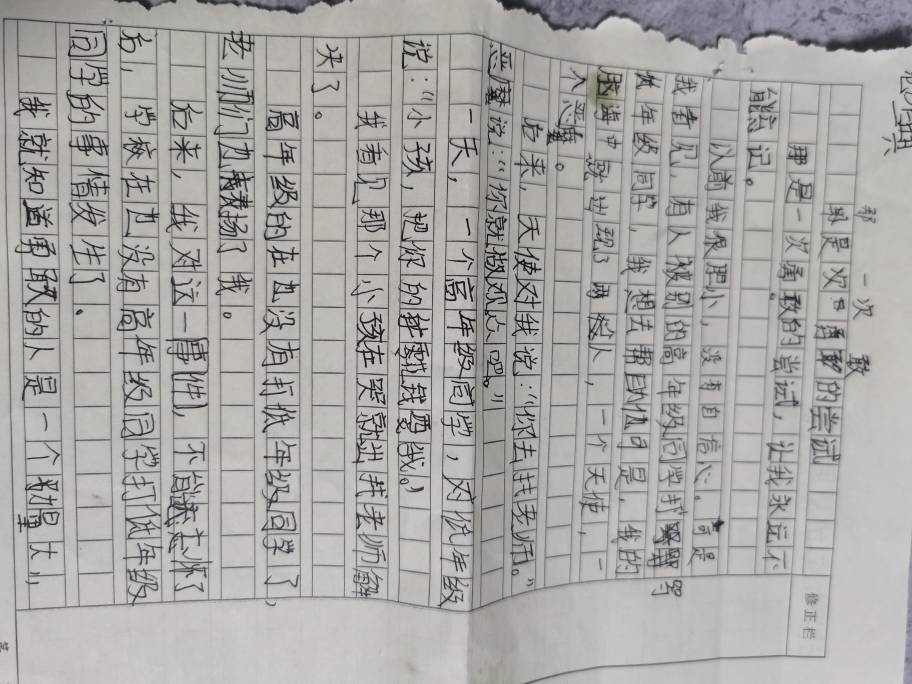 那 一次 敢
那是一次勇敢的尝试
那是一次勇敢的尝试,让我永远不
能忘记。
以前我很胆小,没有自信心。可是
我看见,有人被别的高年级同学打
低年级同学,我想去帮助他可是,我的
脑海中就出现了两人,一个天使,一
个恶魔。
后来,天使对我说:“你去找老师。”
恶魔说:“你就做观点吧。”
一天,一个高年级同学,对低年级
说:“小孩,把你的钱给我。”
我看见那个小孩在哭就进找老师解
决了。
高年级的在也没有打低年级同学了,
老师们也表扬了我。
后来,我对这一事性,不能忘怀了
右,学校在也没有高年级同学打低年级
同学的事情发生了。
我就知道勇敢的人是一个
修正栏